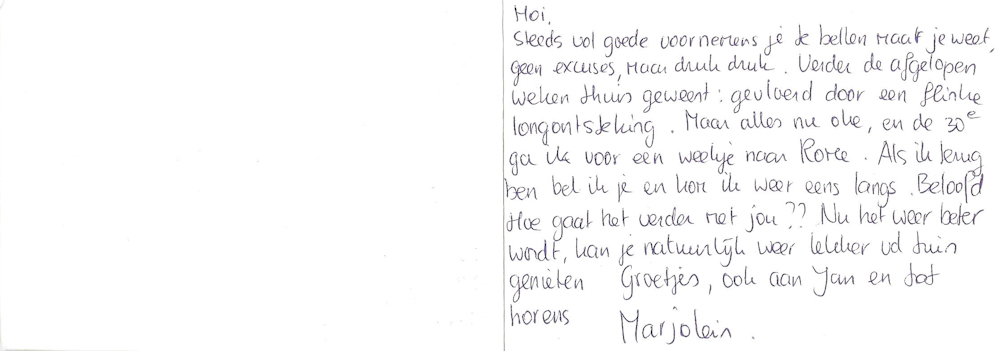 Hoi,
Steeds vol goede voornemens je te bellen maar je weet,
geen excuses, maar druk druk. Verder de afgelopen
weken thuis geweest: gevloerd door een flinke
longontsteking. Maar alles nu oke, en de 30e
ga ik voor een weekje naar Rome. Als ik terug
ben bel ik je en kom ik weer eens langs. Beloofd
Hoe gaat het verder met jou?? Nu het weer beter
wordt, kan je natuurlijk weer lekker vd tuin
genieten Groetjes, ook aan Jan en tot
horens Marjolein.